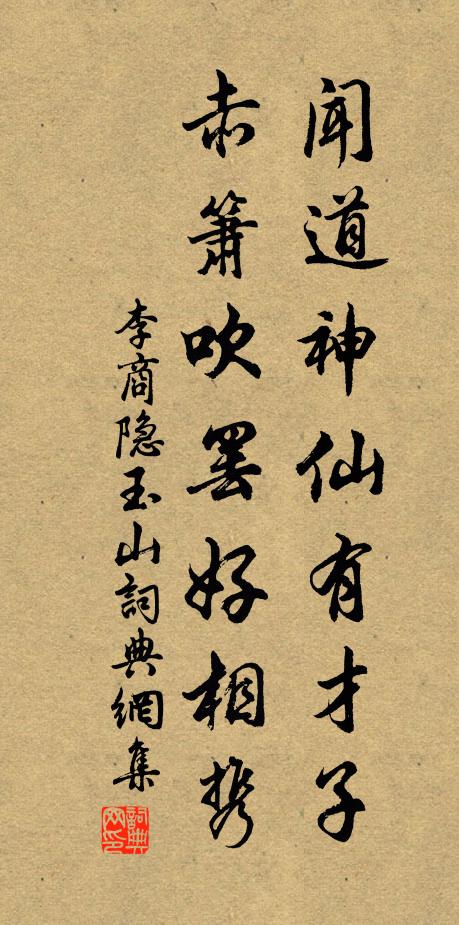 闻道神仙有才子
赤簫吹罢好相携
李商隐玉山詞典網集
詞典网印